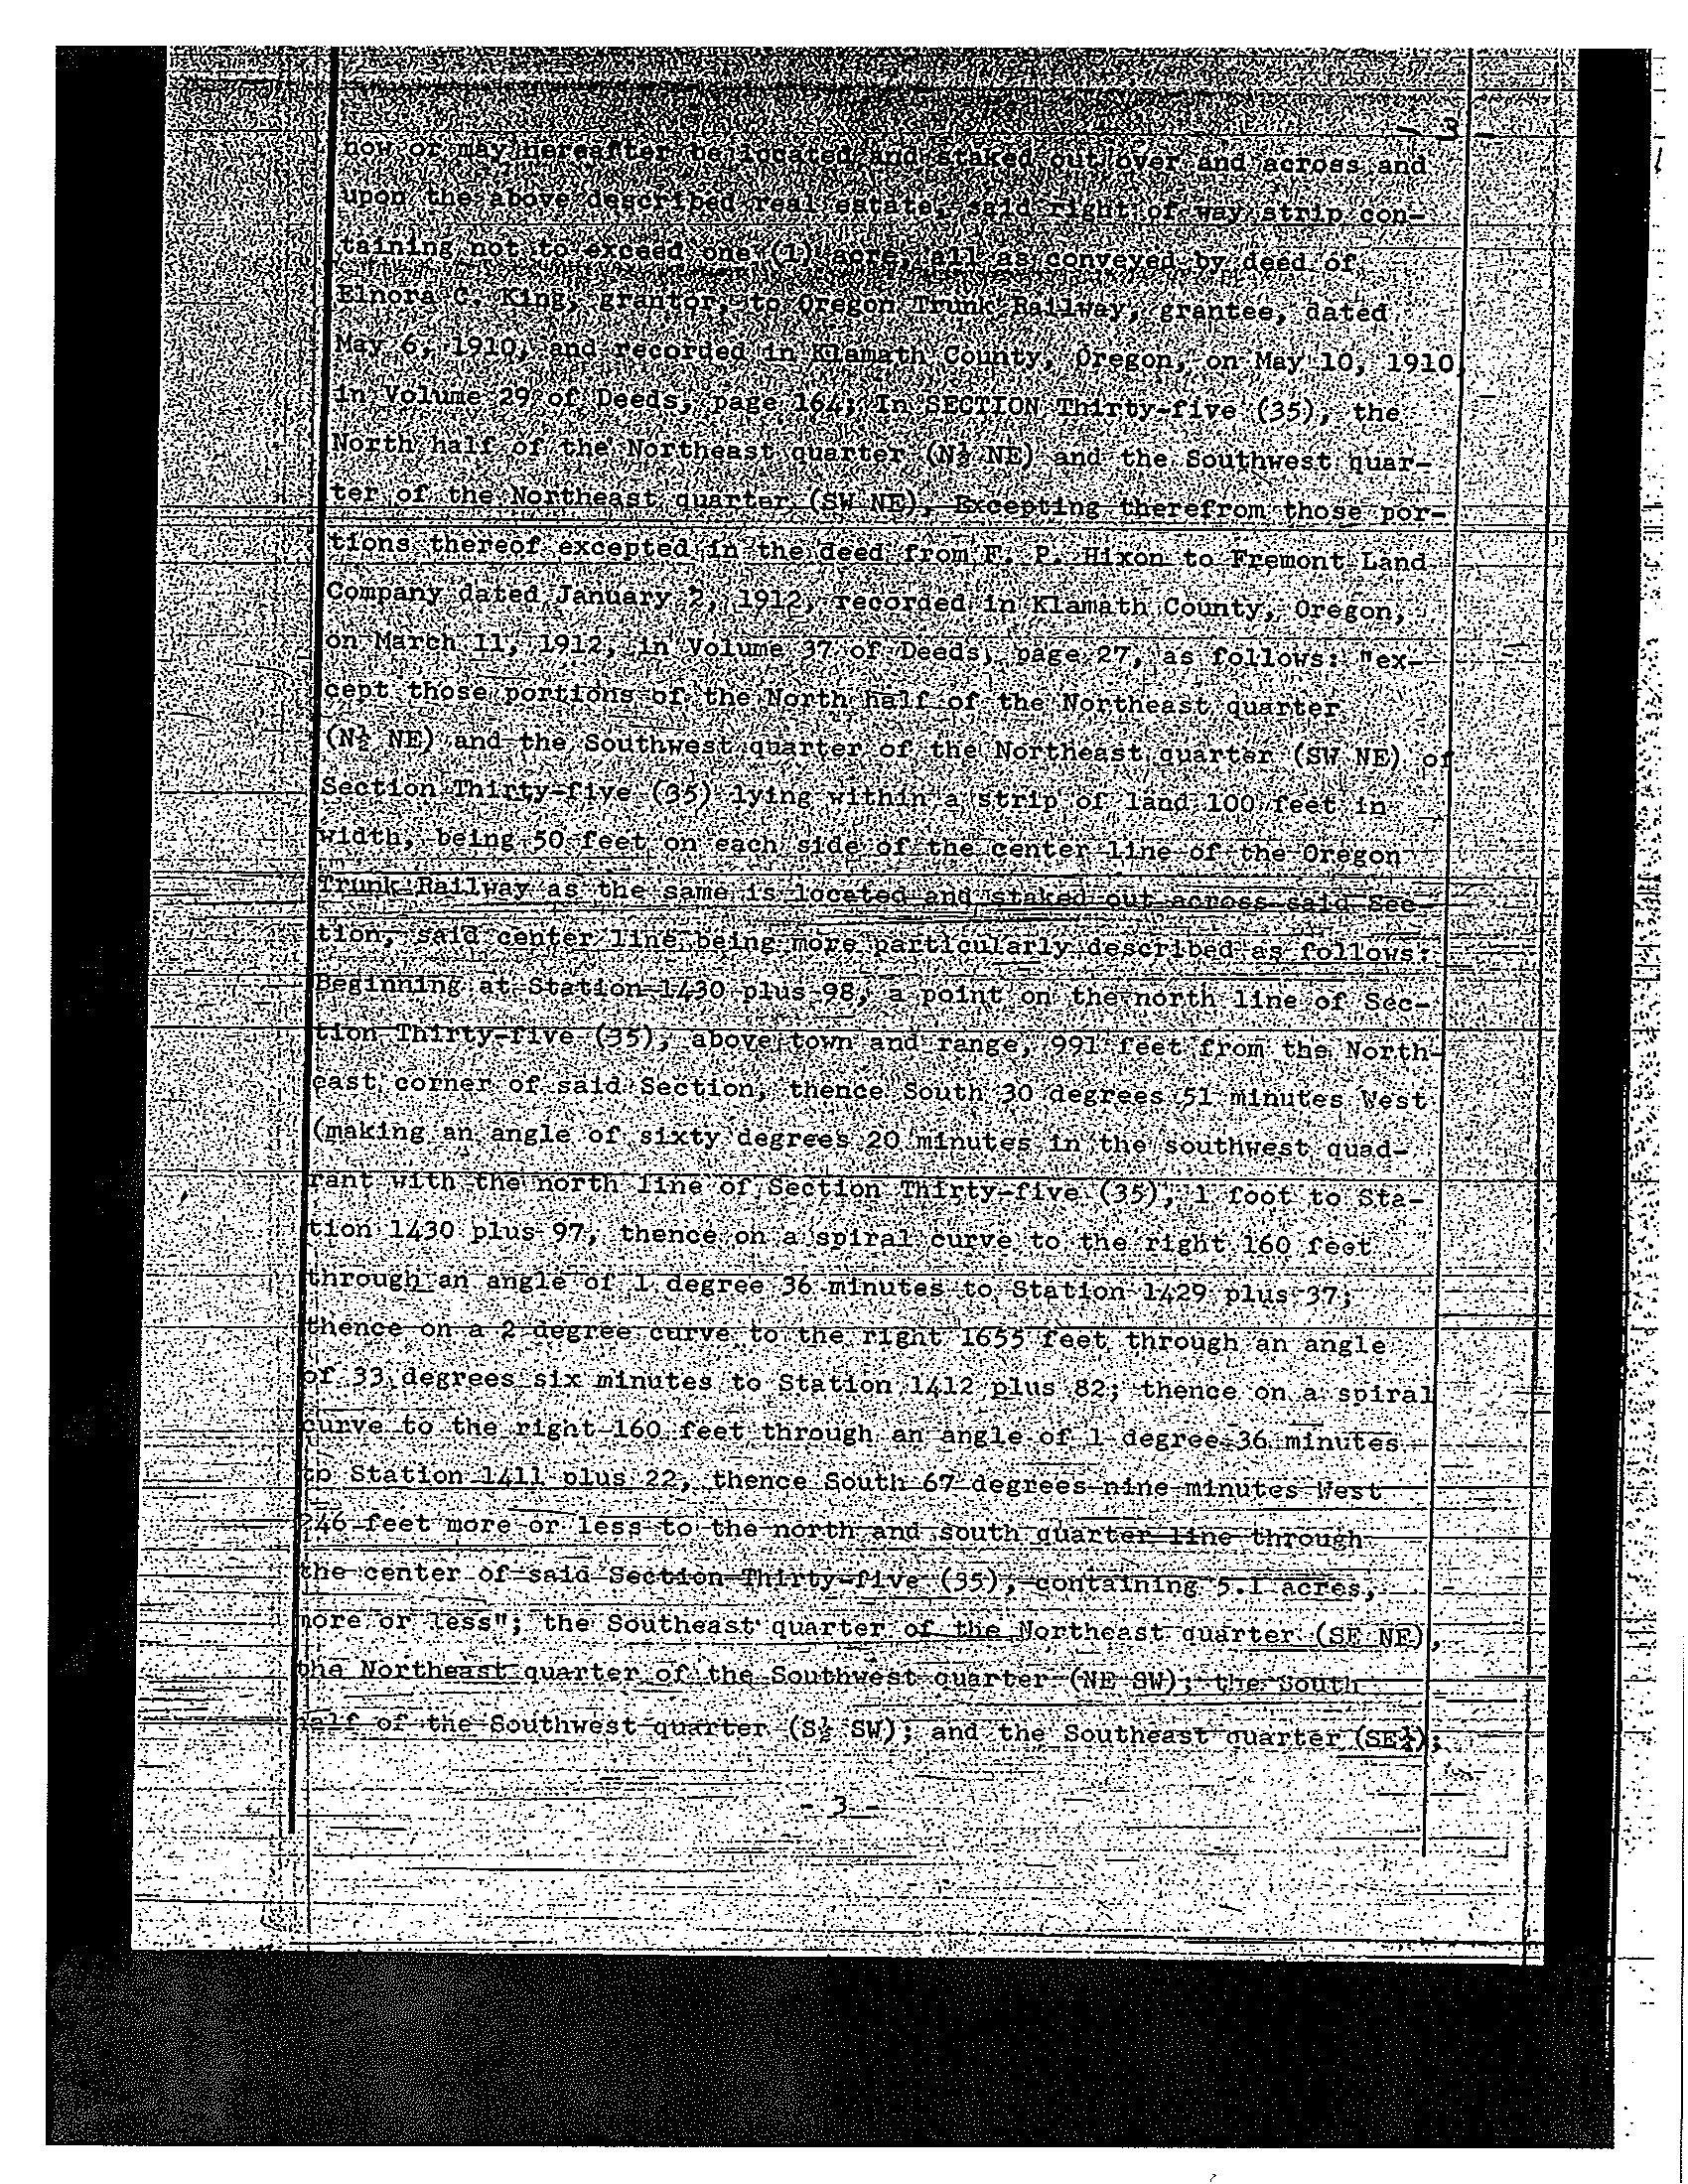 - 3 -
now or may hereafter be located and staked out over and across and
upon the above described real estate, said right of way strip con-
taining not to exceed one (1) acre, all as conveyed by deed of
Elnora C. King, grantor, to Oregon Trunk Railway, grantee, dated
May 6, 1910, and recorded in Klamath County, Oregon, on May 10, 1910,
in Volume 29 of Deeds, page 164; In SECTION Thirty-five (35), the
North half of the Northeast quarter (N½ NE) and the Southwest quar-
ter of the Northeast quarter (SW NE), Excepting therefrom those por-
tions thereof excepted in the deed from F. P. Hixon to Fremont Land
Company dated January 2, 1912, recorded in Klamath County, Oregon,
on March 11, 1912, in Volume 37 of Deeds, page 27, as follows: "ex-
cept those portions of the North half of the Northeast quarter
(N½ NE) and the Southwest quarter of the Northeast quarter (SW NE) of
Section Thirty-five (35) lying within a strip of land 100 feet in
width, being 50 feet on each side of the center line of the Oregon
Trunk Railway as the same is located and staked out across said Sec-
tion, said center line being more particularly described as follows:
Beginning at Station 1430 plus 98, a point on the north line of Sec-
tion Thirty-five (35), above town and range, 991 feet from the North-
east corner of said Section, thence South 30 degrees 51 minutes West
(making an angle of sixty degrees 20 minutes in the southwest quad-
rant with the north line of Section Thirty-five (35), 1 foot to Sta-
tion 1430 plus 97, thence on a spiral curve to the right 160 feet
through an angle of 1 degree 36 minutes to Station 1429 plus 37;
thence on a 2 degree curve to the right 1655 feet through an angle
of 33 degrees six minutes to Station 1412 plus 82; thence on a spiral
curve to the right 160 feet through an angle of 1 degree 36 minutes
to Station 1411 plus 22, thence South 67 degrees nine minutes West
246 feet more or less to the north and south quarter line through
the center of said Section Thirty-five (35), containing 5.1 acres,
more or less"; the Southeast quarter of the Northeast quarter (SE NE),
the Northeast quarter of the Southwest quarter (NE SW); the South
half of the Southwest quarter (S½ SW); and the Southeast quarter (SE¼);
- 3 -